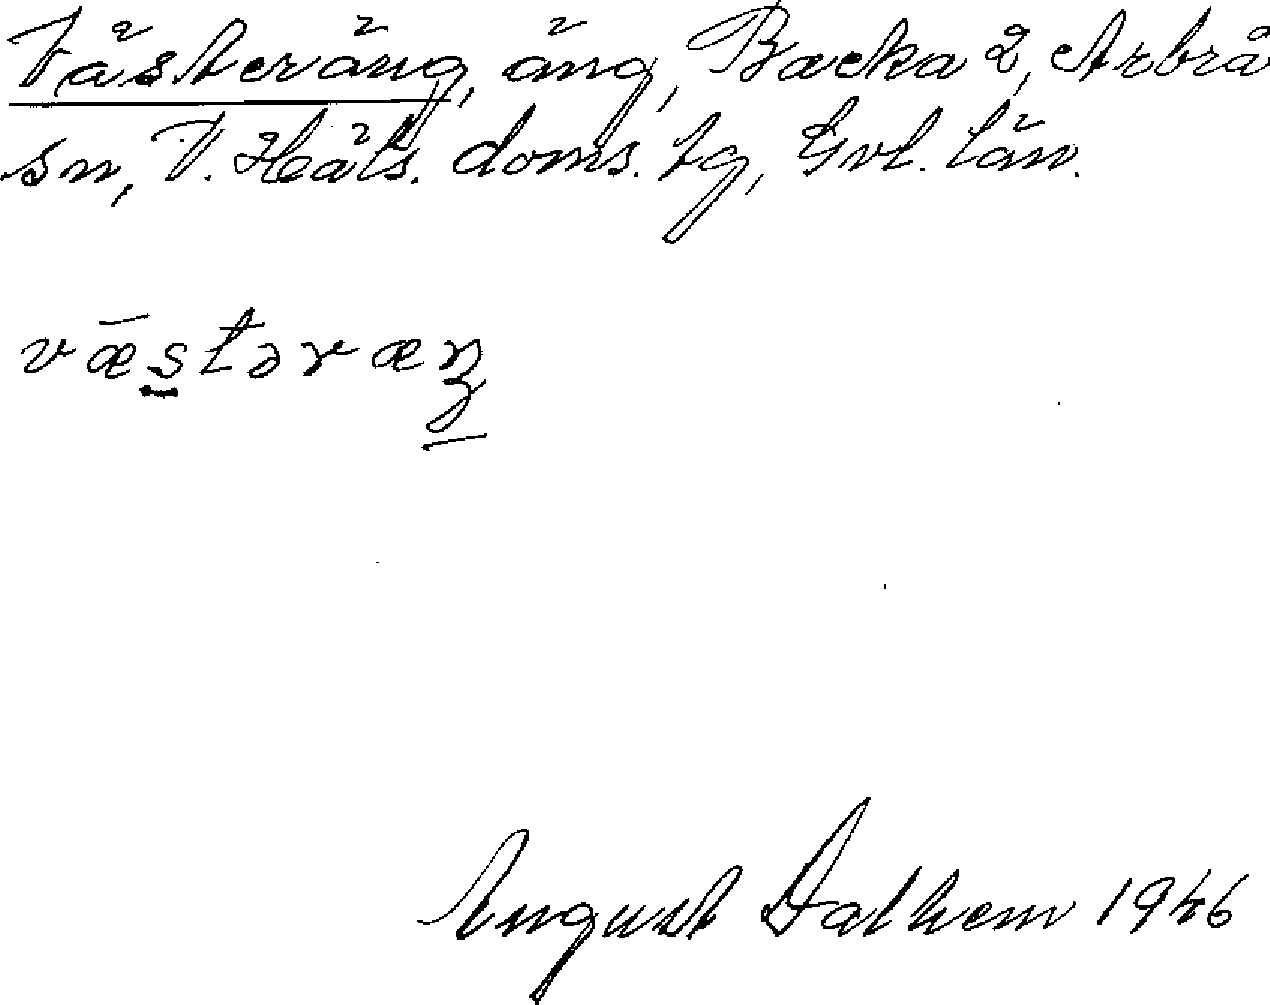 Västeräng, äng, Backa 2, Arbrå
sn, V. Häls. doms. tg, Gvl. län.
væ̅s̱təræŋ̱
August Dalhem 1946